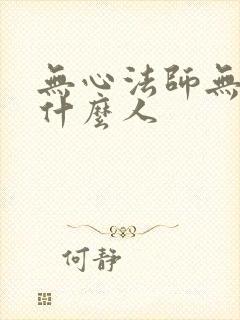 無心法師無
什麼人
何靜